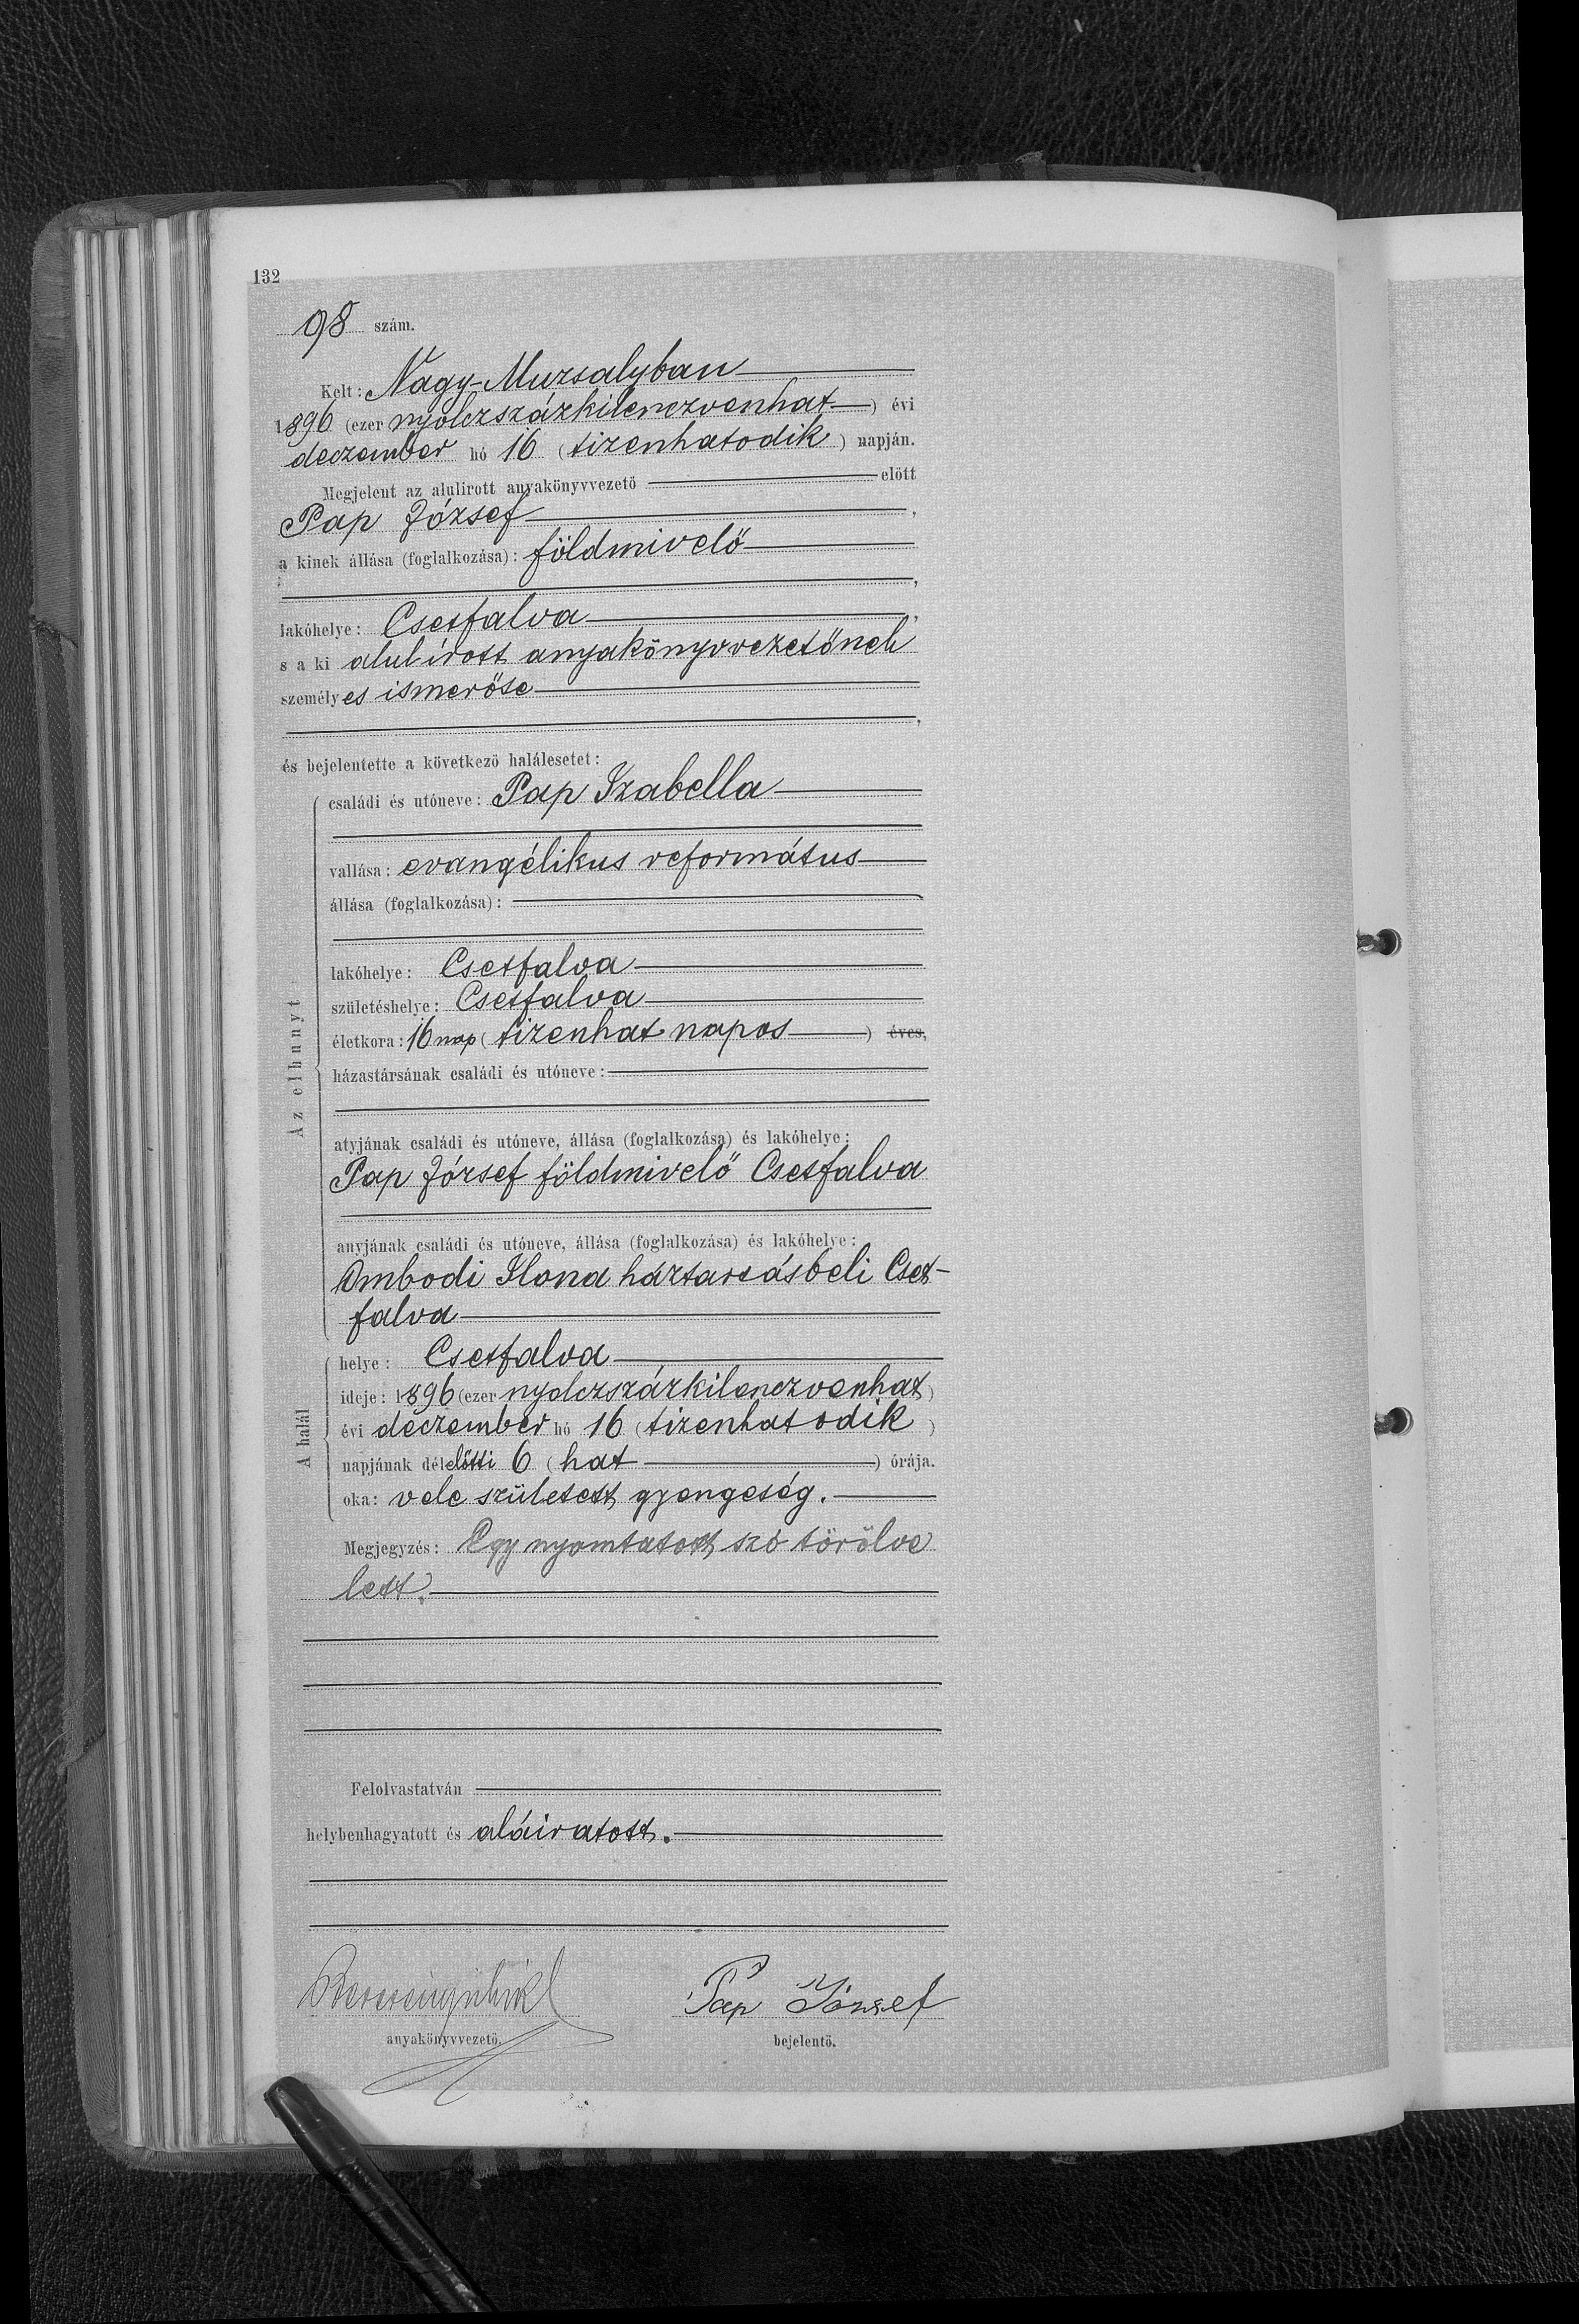 132
98 szám.
Kelt: Nagy-Muzsalyban
1896 (ezer nyolczszázkilenczvenhat) évi
deczember hó 16 (tizenhatodik) napján.
Megjelent az alulirott anyakönyvvezető előtt
Pap József,
a kinek állása (foglalkozása): földmivelő
,
lakóhelye: Csetfalva,
s a ki alulírott anyakönyvvezetőnek
személyes ismerőse
,
és bejelentette a következő halálesetet:
Az elhunyt
családi és utóneve: Pap Izabella
vallása: evangélikus református
állása (foglalkozása):
lakóhelye: Csetfalva
születéshelye: Csetfalva
életkora: 16 nap (tizenhat napos) éves,
házastársának családi és utóneve:
atyjának családi és utóneve, állása (foglalkozása) és lakóhelye:
Pap József földmivelő Csetfalva
anyjának családi és utóneve, állása (foglalkozása) és lakóhelye:
Ombodi Ilona háztartásbeli Cset-
falva
A halál
helye: Csetfalva
ideje: 1896 (ezer nyolczszázkilenczvenhat)
évi deczember hó 16 (tizenhatodik)
napjának délelőtti 6 (hat) órája.
oka: vele született gyengeség.
Megjegyzés: Egy nyomtatott szó törölve
lett.
Felolvastatván
helybenhagyatott és aláiratott.
Pap József
anyakönyvvezető. bejelentő.